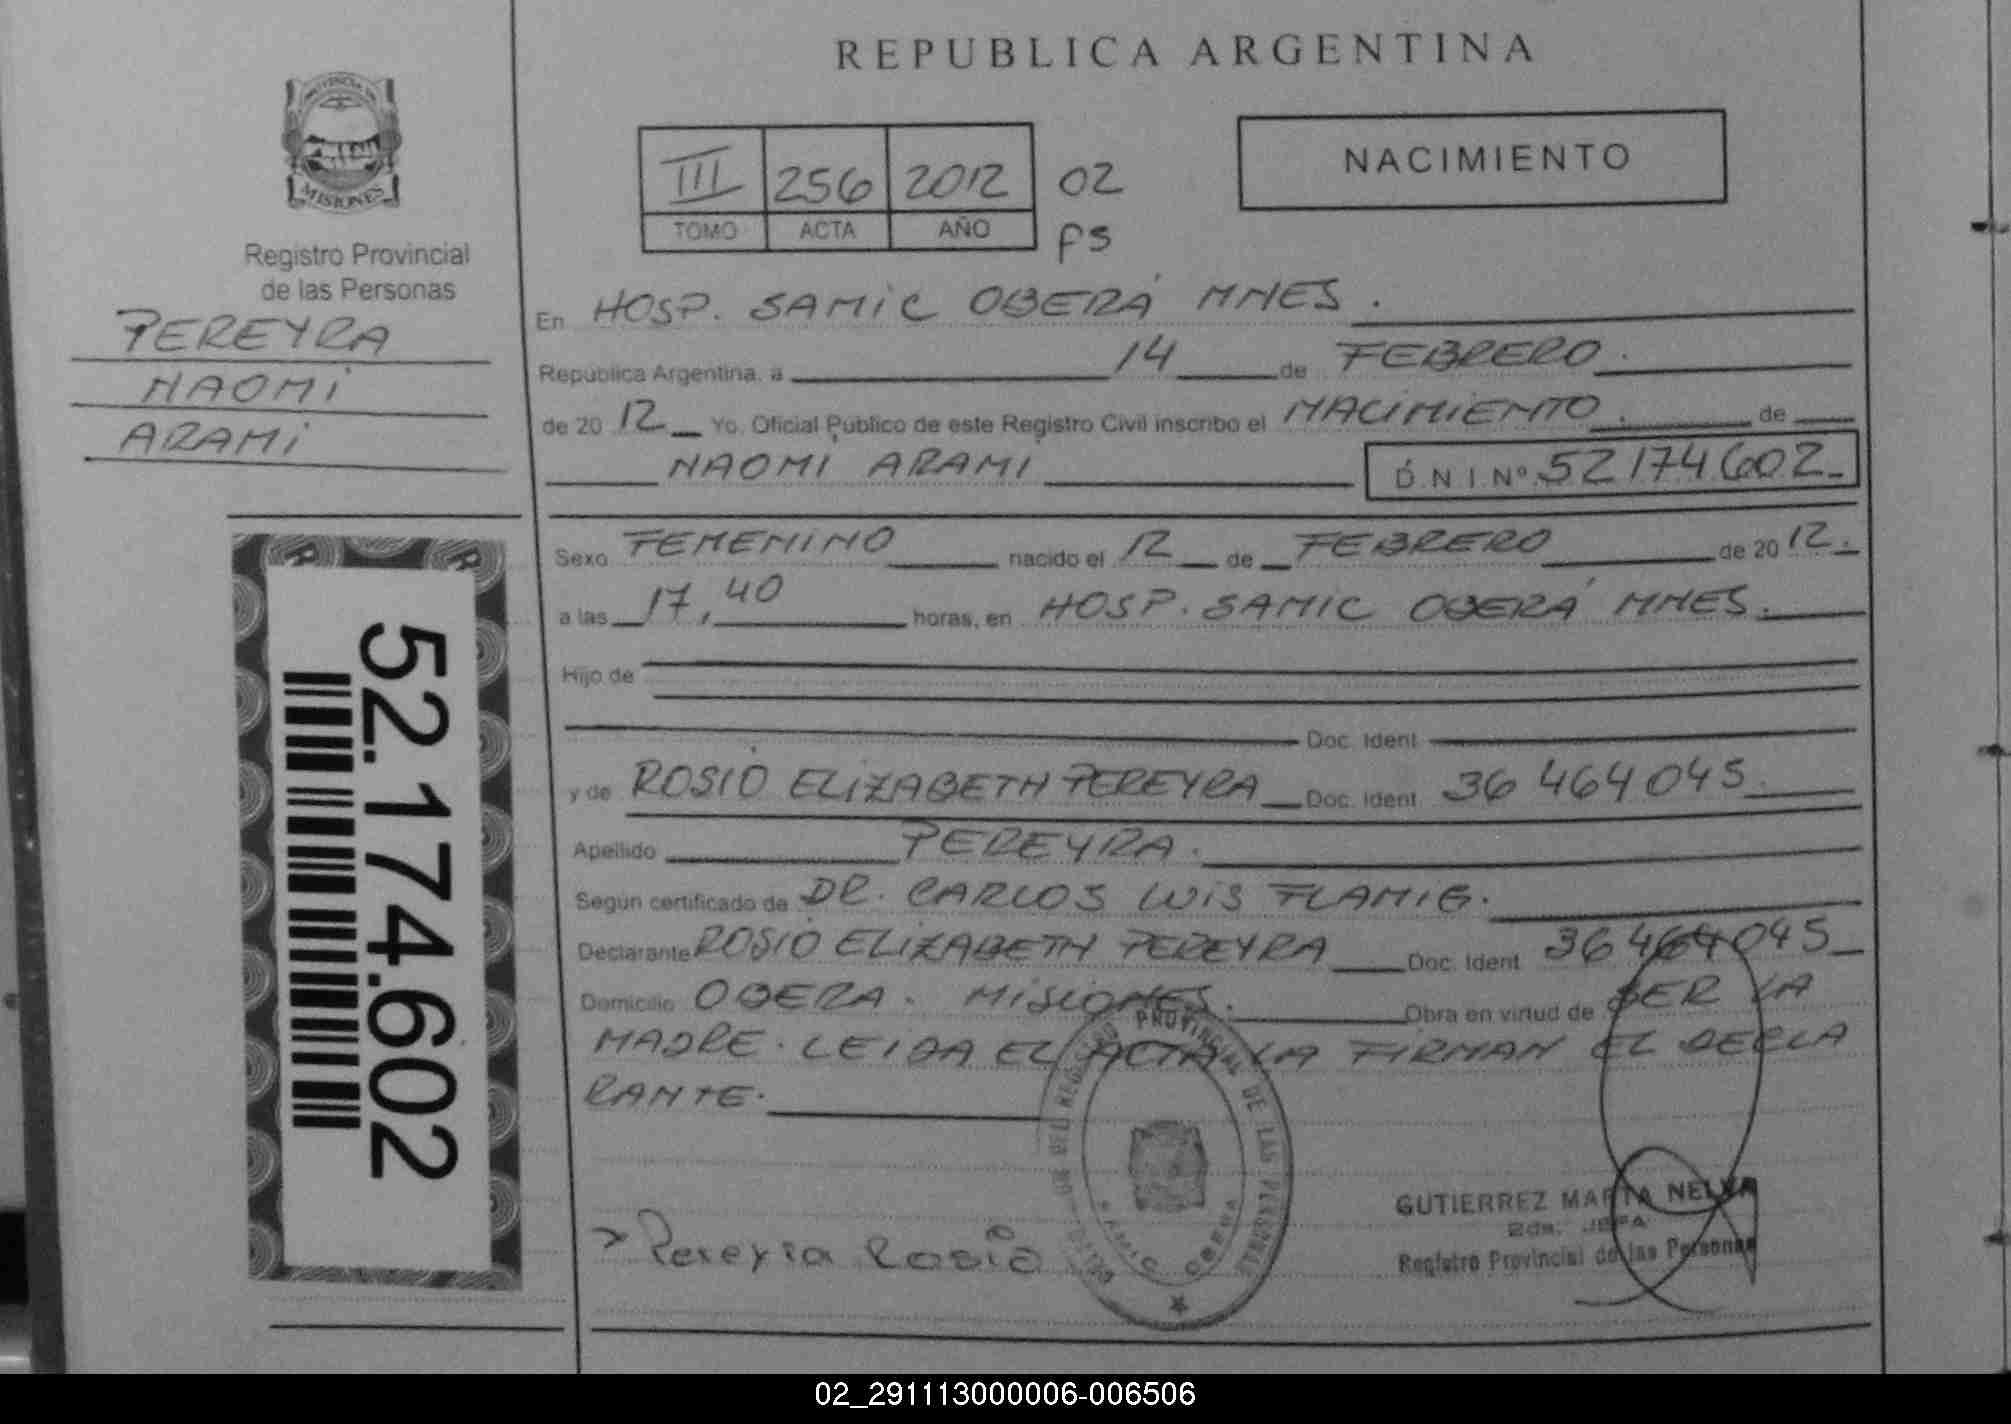 REPUBLICA ARGENTINA
PROVINCIA DE
MISIONES
Registro Provincial
de las Personas
PEREYRA
NAOMI
ARAMI
III 256 2012 02
TOMO ACTA AÑO PS
NACIMIENTO
En HOSP. SAMIC OBERÁ MNES.
Republica Argentina, a 14 de FEBRERO.
de 20 12 Yo, Oficial Público de este Registro Civil inscribo el NACIMIENTO. de
NAOMI ARAMI D.N.I.Nº 52174602
Sexo FEMENINO nacido el 12 de FEBRERO de 20 12.
a las 17,40 horas, en HOSP. SAMIC OBERÁ MNES.
Hijo de
Doc. Ident.
y de ROSIO ELIZABETH PEREYRA Doc. Ident. 36 464 045.
Apellido PEREYRA.
Según certificado de DR. CARLOS LUIS FLAMIG.
Declarante ROSIO ELIZABETH PEREYRA Doc. Ident. 36 464 045
Domicilio OBERA. MISIONES. Obra en virtud de SER LA
MADRE. LEIDA EL ACTA LA FIRMAN EL DECLA
RANTE.
52.174.602
Pereyra Rosio
PROVINCIAL DE LAS PERSONAS
OBERA
GUTIERREZ MARTA NELVA
2da. JEFA
Registro Provincial de las Personas
02_291113000006-006506